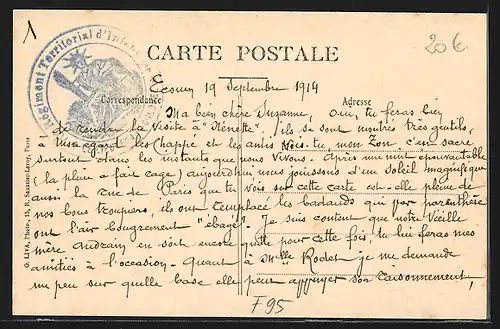 1
20€
Régiment Territorial d'Infanterie
CARTE POSTALE
Ecouen 19 Septembre 1914
Correspondance
Adresse
Ma bien chère Suzanne, Oui, tu feras bien
de rendre la visite à "Nénette". ils se sont montrés très gentils,
à mon égard les Chappe et les amis Vois-tu, mon Zon c'est sacré
surtout dans les instants que nous vivons. Après une nuit épouvantable
(la pluie a fait rage) aujourd'hui nous jouissons d'un soleil magnifique
aussi la rue de Paris que tu vois sur cette carte est-elle pleine de
nos bons troupiers, ils ont remplacé les badauds qui par parenthèse
ont l'air bougrement "ébayé". Je suis content que notre vieille
mère Audrain en soit encore quitte pour cette fois, tu lui feras mes
amitiés à l'occasion. Quant à Melle Rodet je me demande
un peu sur quelle base elle peut appuyer son raisonnement,
F95